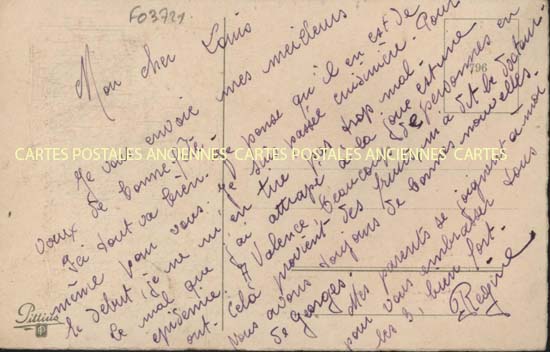 F03721
796
Mon cher Louis
Je vous envoie mes meilleurs
vœux de bonne fête.
Ici tout va bien. Je pense qu'il en est de
même pour vous. Je suis passée cuisinière. Pour
le début je ne m'en tire pas trop mal.
Le mal que j'ai attrapé à la joue est une
épidémie. A Valence beaucoup de personnes en
ont. Cela provient des a dit le docteur.
Nous avons toujours de bonnes nouvelles
de Georges.
Mes parents se joignent à moi
pour vous embrasser tous
les 3, bien fort.
Régine
CARTES POSTALES ANCIENNES CARTES POSTALES ANCIENNES CARTES
Pittius